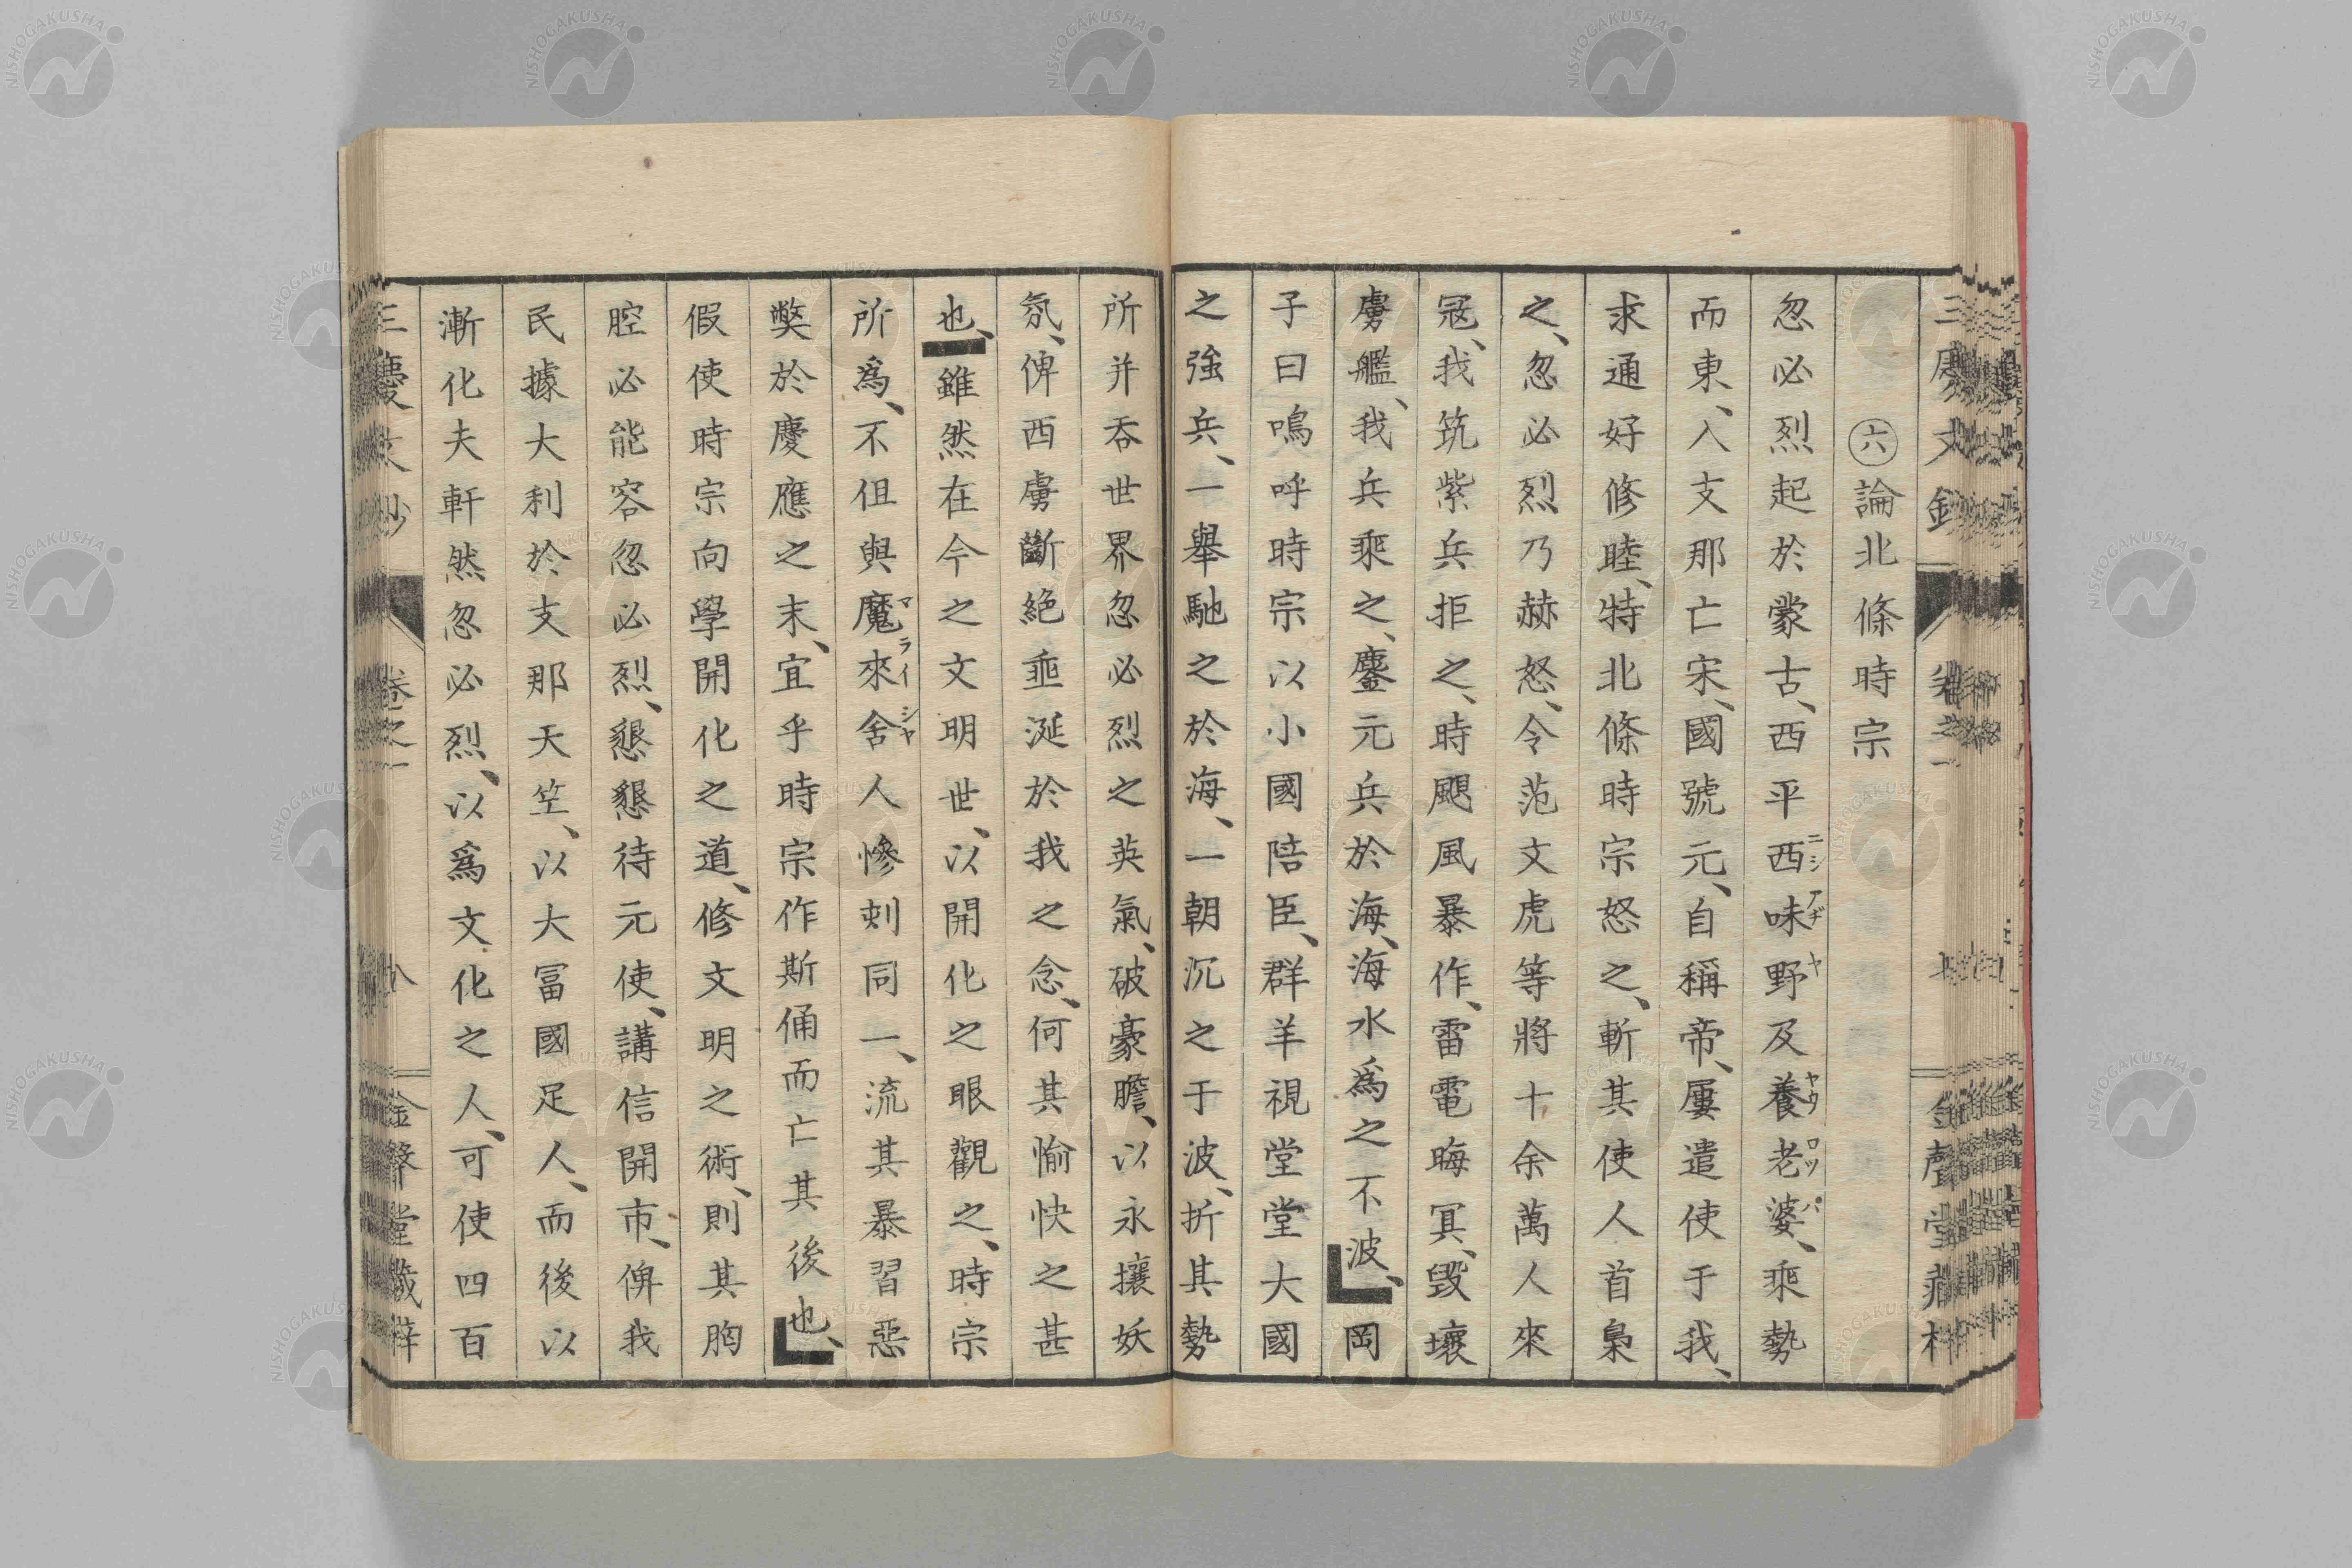 ㊅論北條時宗
忽必烈起於蒙古、西平西味野及養老婆、乘勢
而東、入支那亡宋、國號元、自稱帝、屢遣使于我、
求通好修睦、特北條時宗怒之、斬其使人首梟
之、忽必烈乃赫怒、令范文虎等將十余萬人來
冦、我筑紫兵拒之、時颶風暴作、雷電晦冥、毀壞
虜艦、我兵乘之、鏖元兵於海、海水爲之不波、岡
子曰嗚呼時宗以小國陪臣、群羊視堂堂大國
之強兵、一擧馳之於海、一朝沉之于波、折其勢
所并呑世界忽必烈之英氣、破豪膽、以永攘妖
氛、俾西虜斷絶埀涎於我之念、何其愉快之甚
也、雖然在今之文明世、以開化之眼觀之、時宗
所爲、不但與魔來舍人慘刺同一、流其暴習惡
獘於慶應之末、宜乎時宗作斯俑而亡其後也、
假使時宗向學開化之道、修文明之術、則其胸
腔必能容忽必烈、懇懇待元使、講信開市、俾我
民據大利於支那天竺、以大冨國足人、而後以
漸化夫軒然忽必烈、以爲文化之人、可使四百
三慶文鈔
卷之一